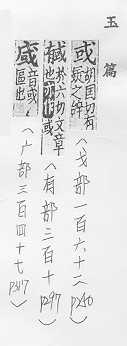 玉篇
或 胡国切有疑之辞
(戈部一百六十二 p240)
戫 於六切文章也亦作彧
(有部三百十 p297)
音或區也
(广部三百四十七 p317)